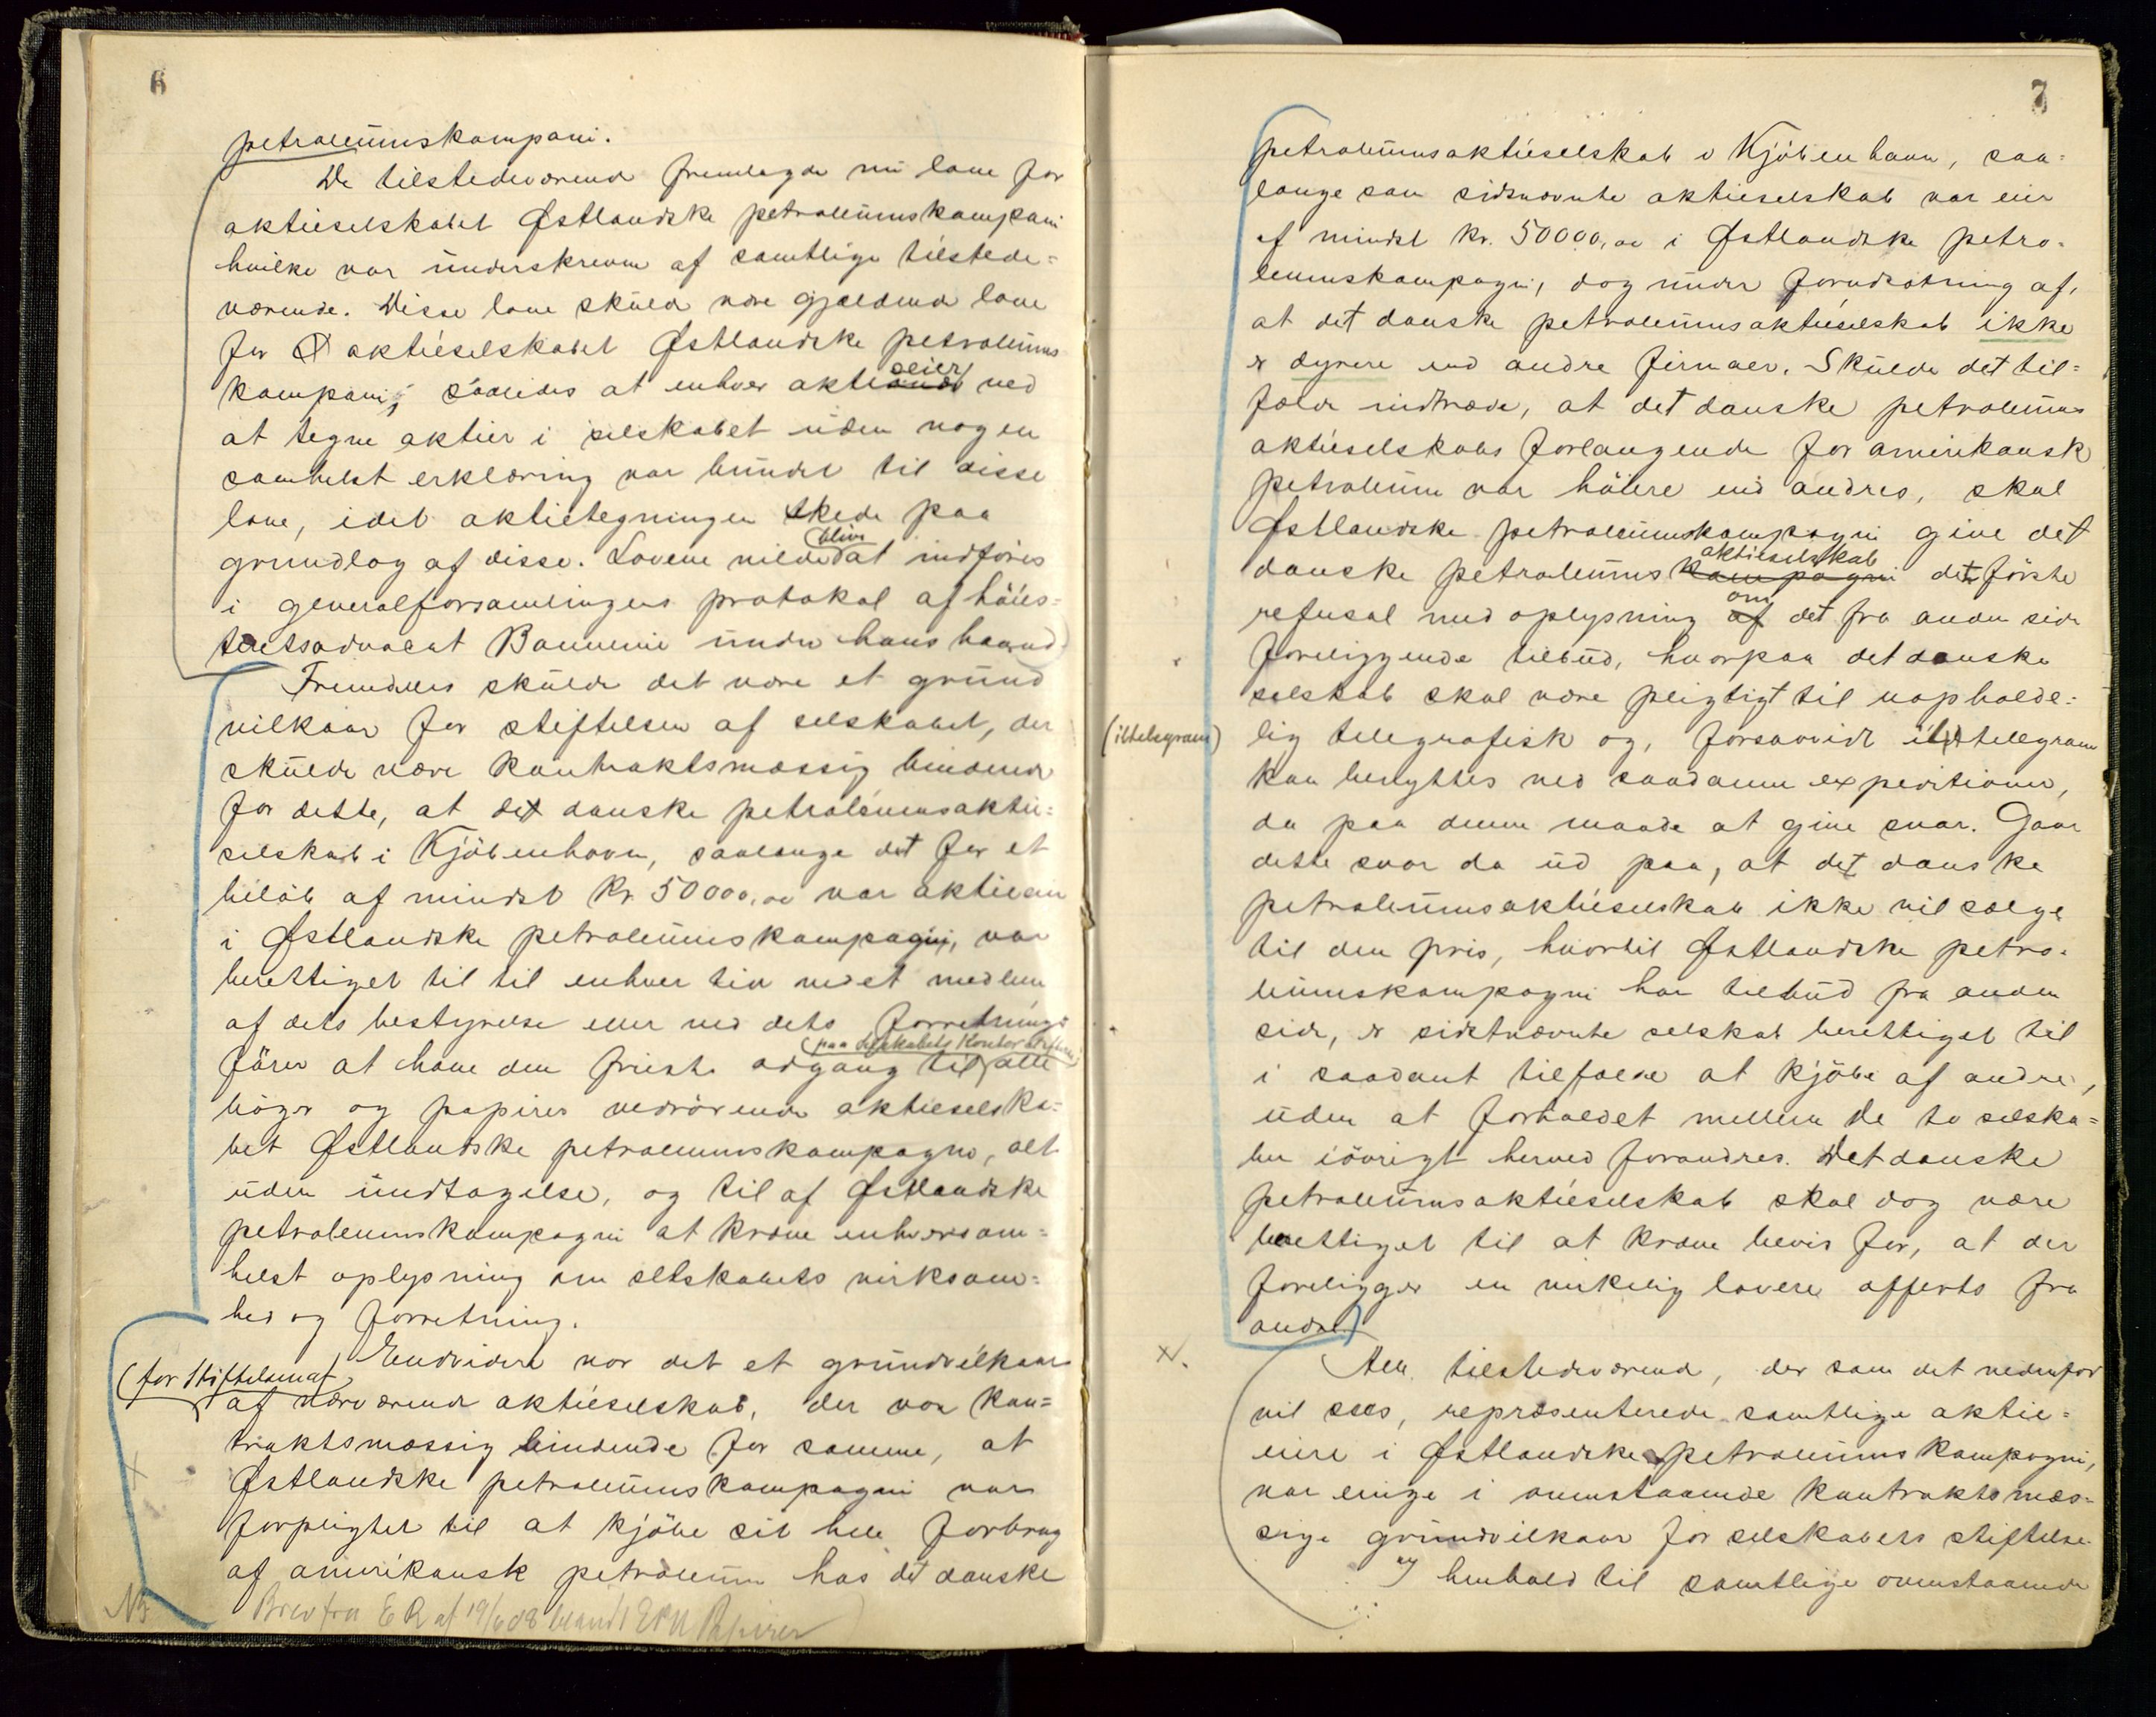 6
petroleumskompani.
De tilstedeværende fremlagde nu love for
aktieselskabet Østlandske petroleumskompani
hvilke var underskrevne af samtlige tilstede=
værende. Disse love skulde være gjældende love
for aktieselskabet Østlandske petroleums
eier
kompani, saaledes at enhver aktionær ved
at tegne aktier i selskabet uden nogen
somhelst erklæring var bundet til disse
love, idet aktietegningen skede paa
blive
grundlag af disse. Lovene vilde at indføres
i generalforsamlingens protokol af høies=
teretsadvocat Bonnevie under hans haand
Fremdeles skulde det være et grund
vilkaar for stiftelsen af selskabet, der
skulde være kontraktsmæssig bindende
for dette, at det danske petroleumsaktie=
selskab i Kjøbenhavn, saalænge det for et
beløb af mindst kr. 50000,00 var aktieeier
i Østlandske petroleumskompagni, var
berettiget til til enhver tid ved et medlem
af dets bestyrelse eller ved dets forretnings=
paa selskabets kontor
fører at have den frieste adgang til alle
bøger og papirer vedrørende aktieselska=
bet Østlandske petroleumskompagni, alt
uden undtagelse, og til af Østlandske
petroleumskompagni at kræve enhversom=
helst oplysning om selskabets virksom=
hed og forretning.
Endvidere var det et grundvilkaar
(for stiftelsen af
af nærværende aktieselskab, der var kon=
traktsmæssig bindende for samme, at
Østlandske petroleumskompagni var
forpligtet til at kjøbe sit hele forbrug
af amerikansk petroleum hos det danske
NB
Brev fra E R af 19/6 08 blandt Papirer
7
petroleumsaktieselskab i Kjøbenhavn, saa=
længe som sidstnævnte aktieselskab var eier
af mindst kr. 50000,00 i Østlandske petro=
leumskompagni, dog under forudsætning af,
at det danske petroleumsaktieselskab ikke
er dyrere end andre firmaer. Skulde det til=
fælde indtræde, at det danske petroleums
aktieselskabs forlangende for amerikansk
petroleum var høiere end andres, skal
Østlandske petroleumskompagni give det
aktieselskab
danske petroleums kompagni det første
om
refusal med oplysning af det fra anden side
foreliggende tilbud, hvorpaa det danske
selskab skal være pligtigt til uopholde=
(iltelegram)
lig telegrafisk og, forsavidt iltelegram
kan benyttes ved saadanne expeditioner,
da paa denne maade at give svar. Gaar
dette svar da ud paa, at det danske
petroleumsaktieselskab ikke vil sælge
til den pris, hvortil Østlandske petro=
leumskompagni har tilbud fra anden
side, er sidstnævnte selskab berettiget til
i saadant tilfælde at kjøbe af andre,
uden at forholdet mellem de to selska=
ber iøvrigt herved forandres. Det danske
petroleumsaktieselskab skal dog være
berettiget til at kræve bevis for, at der
foreligger en virkelig lavere offerte fra
andre.
Alle tilstedeværende, der som det nedenfor
vil sees, repræsenterede samtlige aktie=
eiere i Østlandske petroleumskompagni,
var enige i ovenstaaende kontraktsmæs=
sige grundvilkaar for selskabets stiftelse.
I henhold til samtlige ovenstaaende